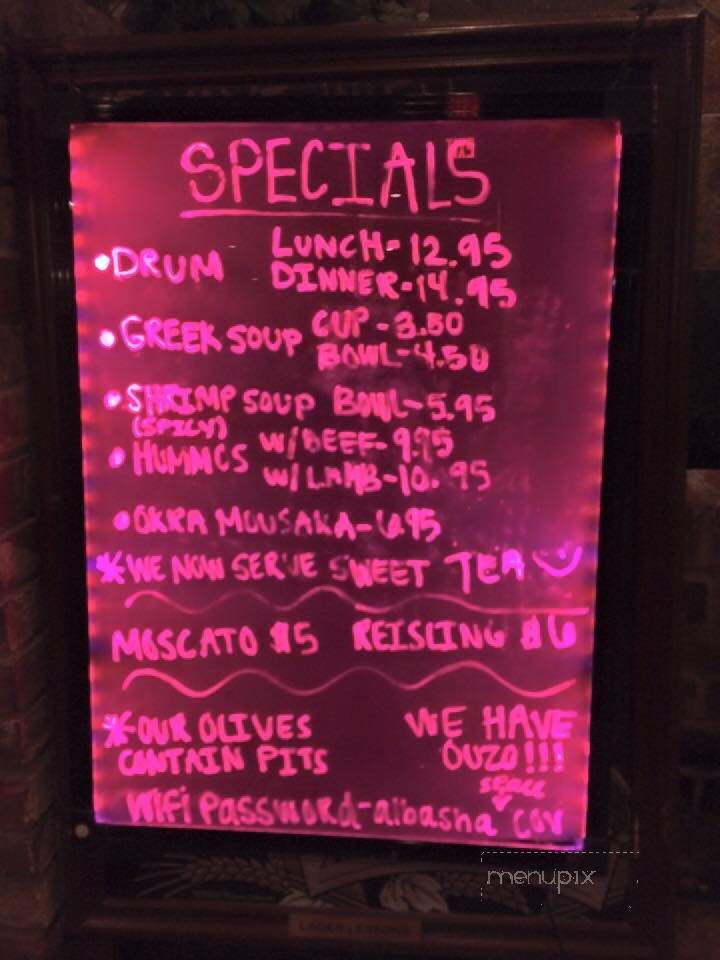 SPECIALS
•DRUM LUNCH-12.95
DINNER-14.95
•GREEK SOUP CUP-3.50
BOWL-4.50
•SHRIMP SOUP BOWL-5.95
(SPICY)
•HUMMCS W/BEEF-9.95
W/LAMB-10.95
•OKRA MOUSAKA-6.95
*WE NOW SERVE SWEET TEA
MOSCATO $5 REISLING $6
*OUR OLIVES
CONTAIN PITS
WE HAVE
OUZO!!!
space
WiFi Password-albasha cov
menupix